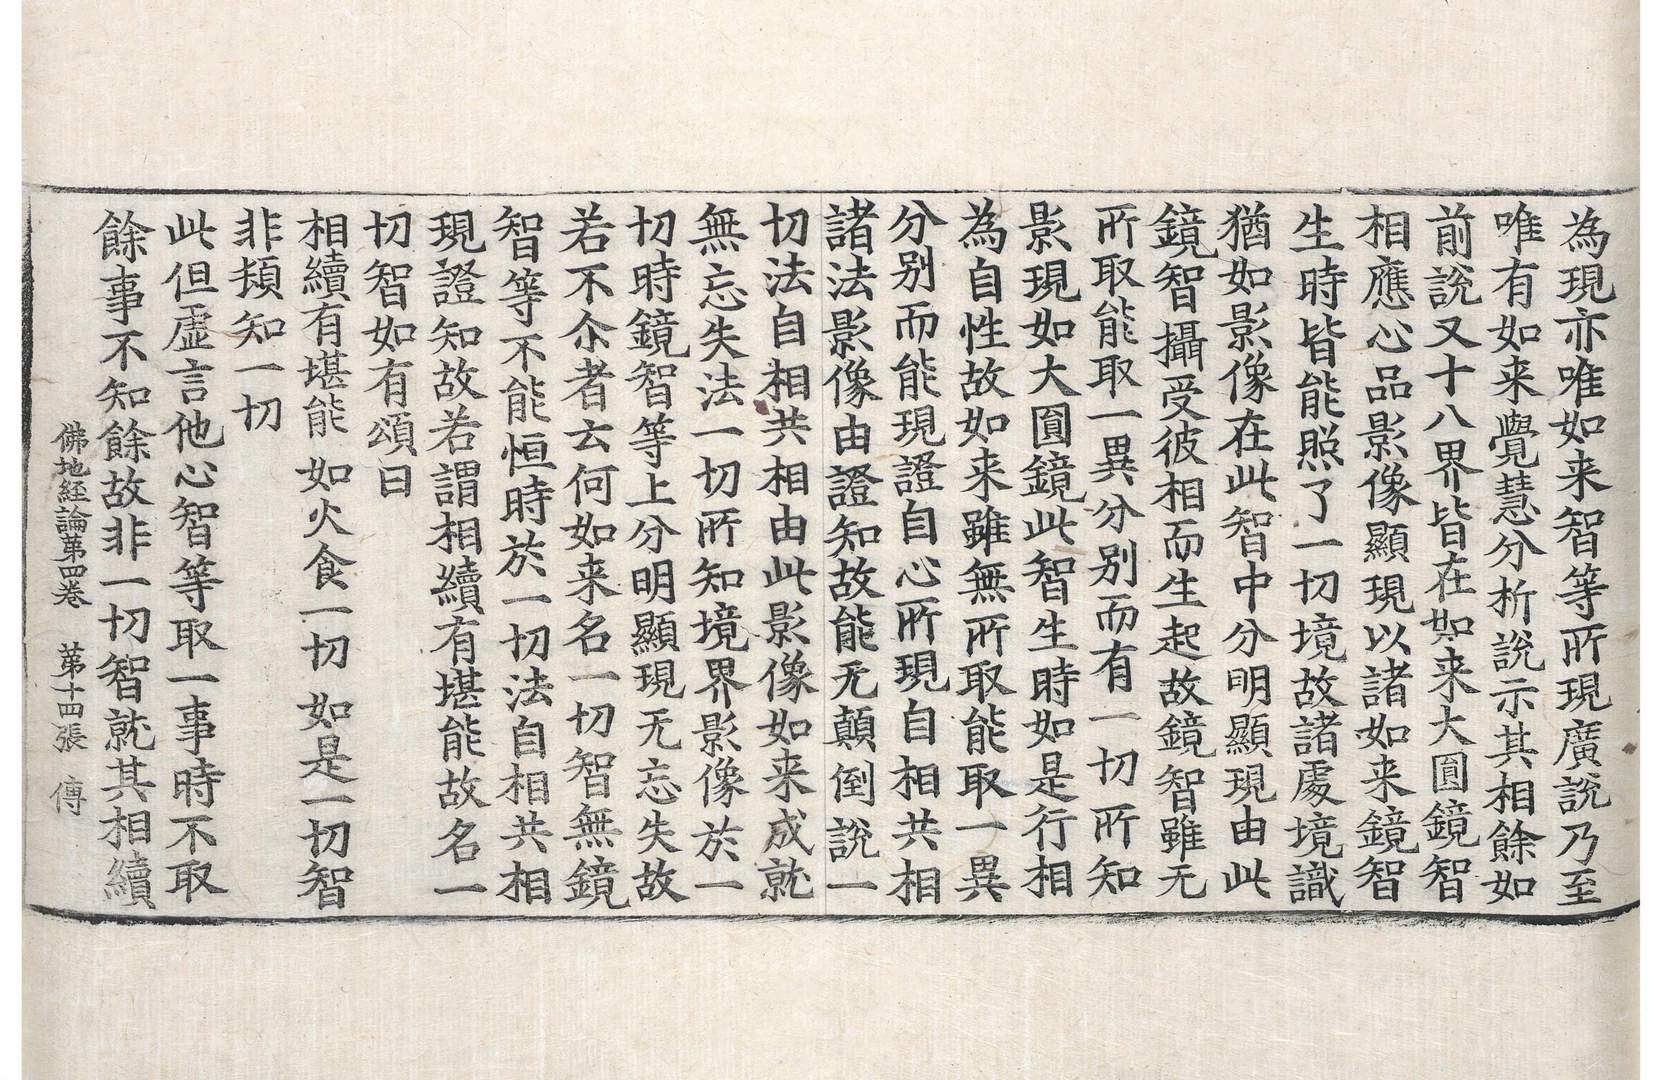 為現亦唯如来智等所現廣說乃至
唯有如来覺慧分析說示其相餘如
前說又十八界皆在如来大圓鏡智
相應心品影像顯現以諸如来鏡智
生時皆能照了一切境故諸處境識
猶如影像在此智中分明顯現由此
鏡智攝受彼相而生起故鏡智雖无
所取能取一異分别而有一切所知
影現如大圓鏡此智生時如是行相
為自性故如来雖無所取能取一異
分别而能現證自心所現自相共相
諸法影像由證知故能无顛倒說一
切法自相共相由此影像如来成就
無忘失法一切所知境界影像於一
切時鏡智等上分明顯現无忘失故
若不尒者云何如来名一切智無鏡
智等不能恒時於一切法自相共相
現證知故若謂相續有堪能故名一
切智如有頌曰
相續有堪能 如火食一切 如是一切智
非頓知一切
此但虛言他心智等取一事時不取
餘事不知餘故非一切智就其相續
佛地経論第四卷 第十四張 傳